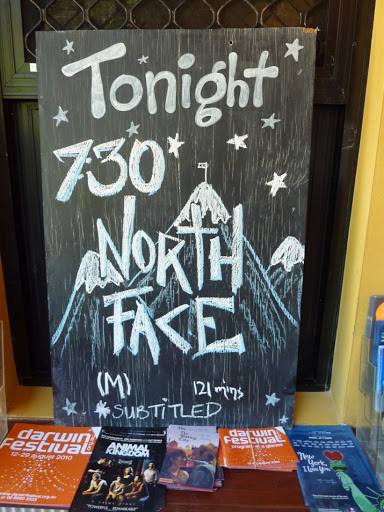 Tonight
7:30
NORTH
FACE
(M) 121 mins
* SUBTITLED
darwin
festival
12-29 august 2010
ANIMAL
KINGDOM
darwin
festival
program at a glance
New York,
I Love You